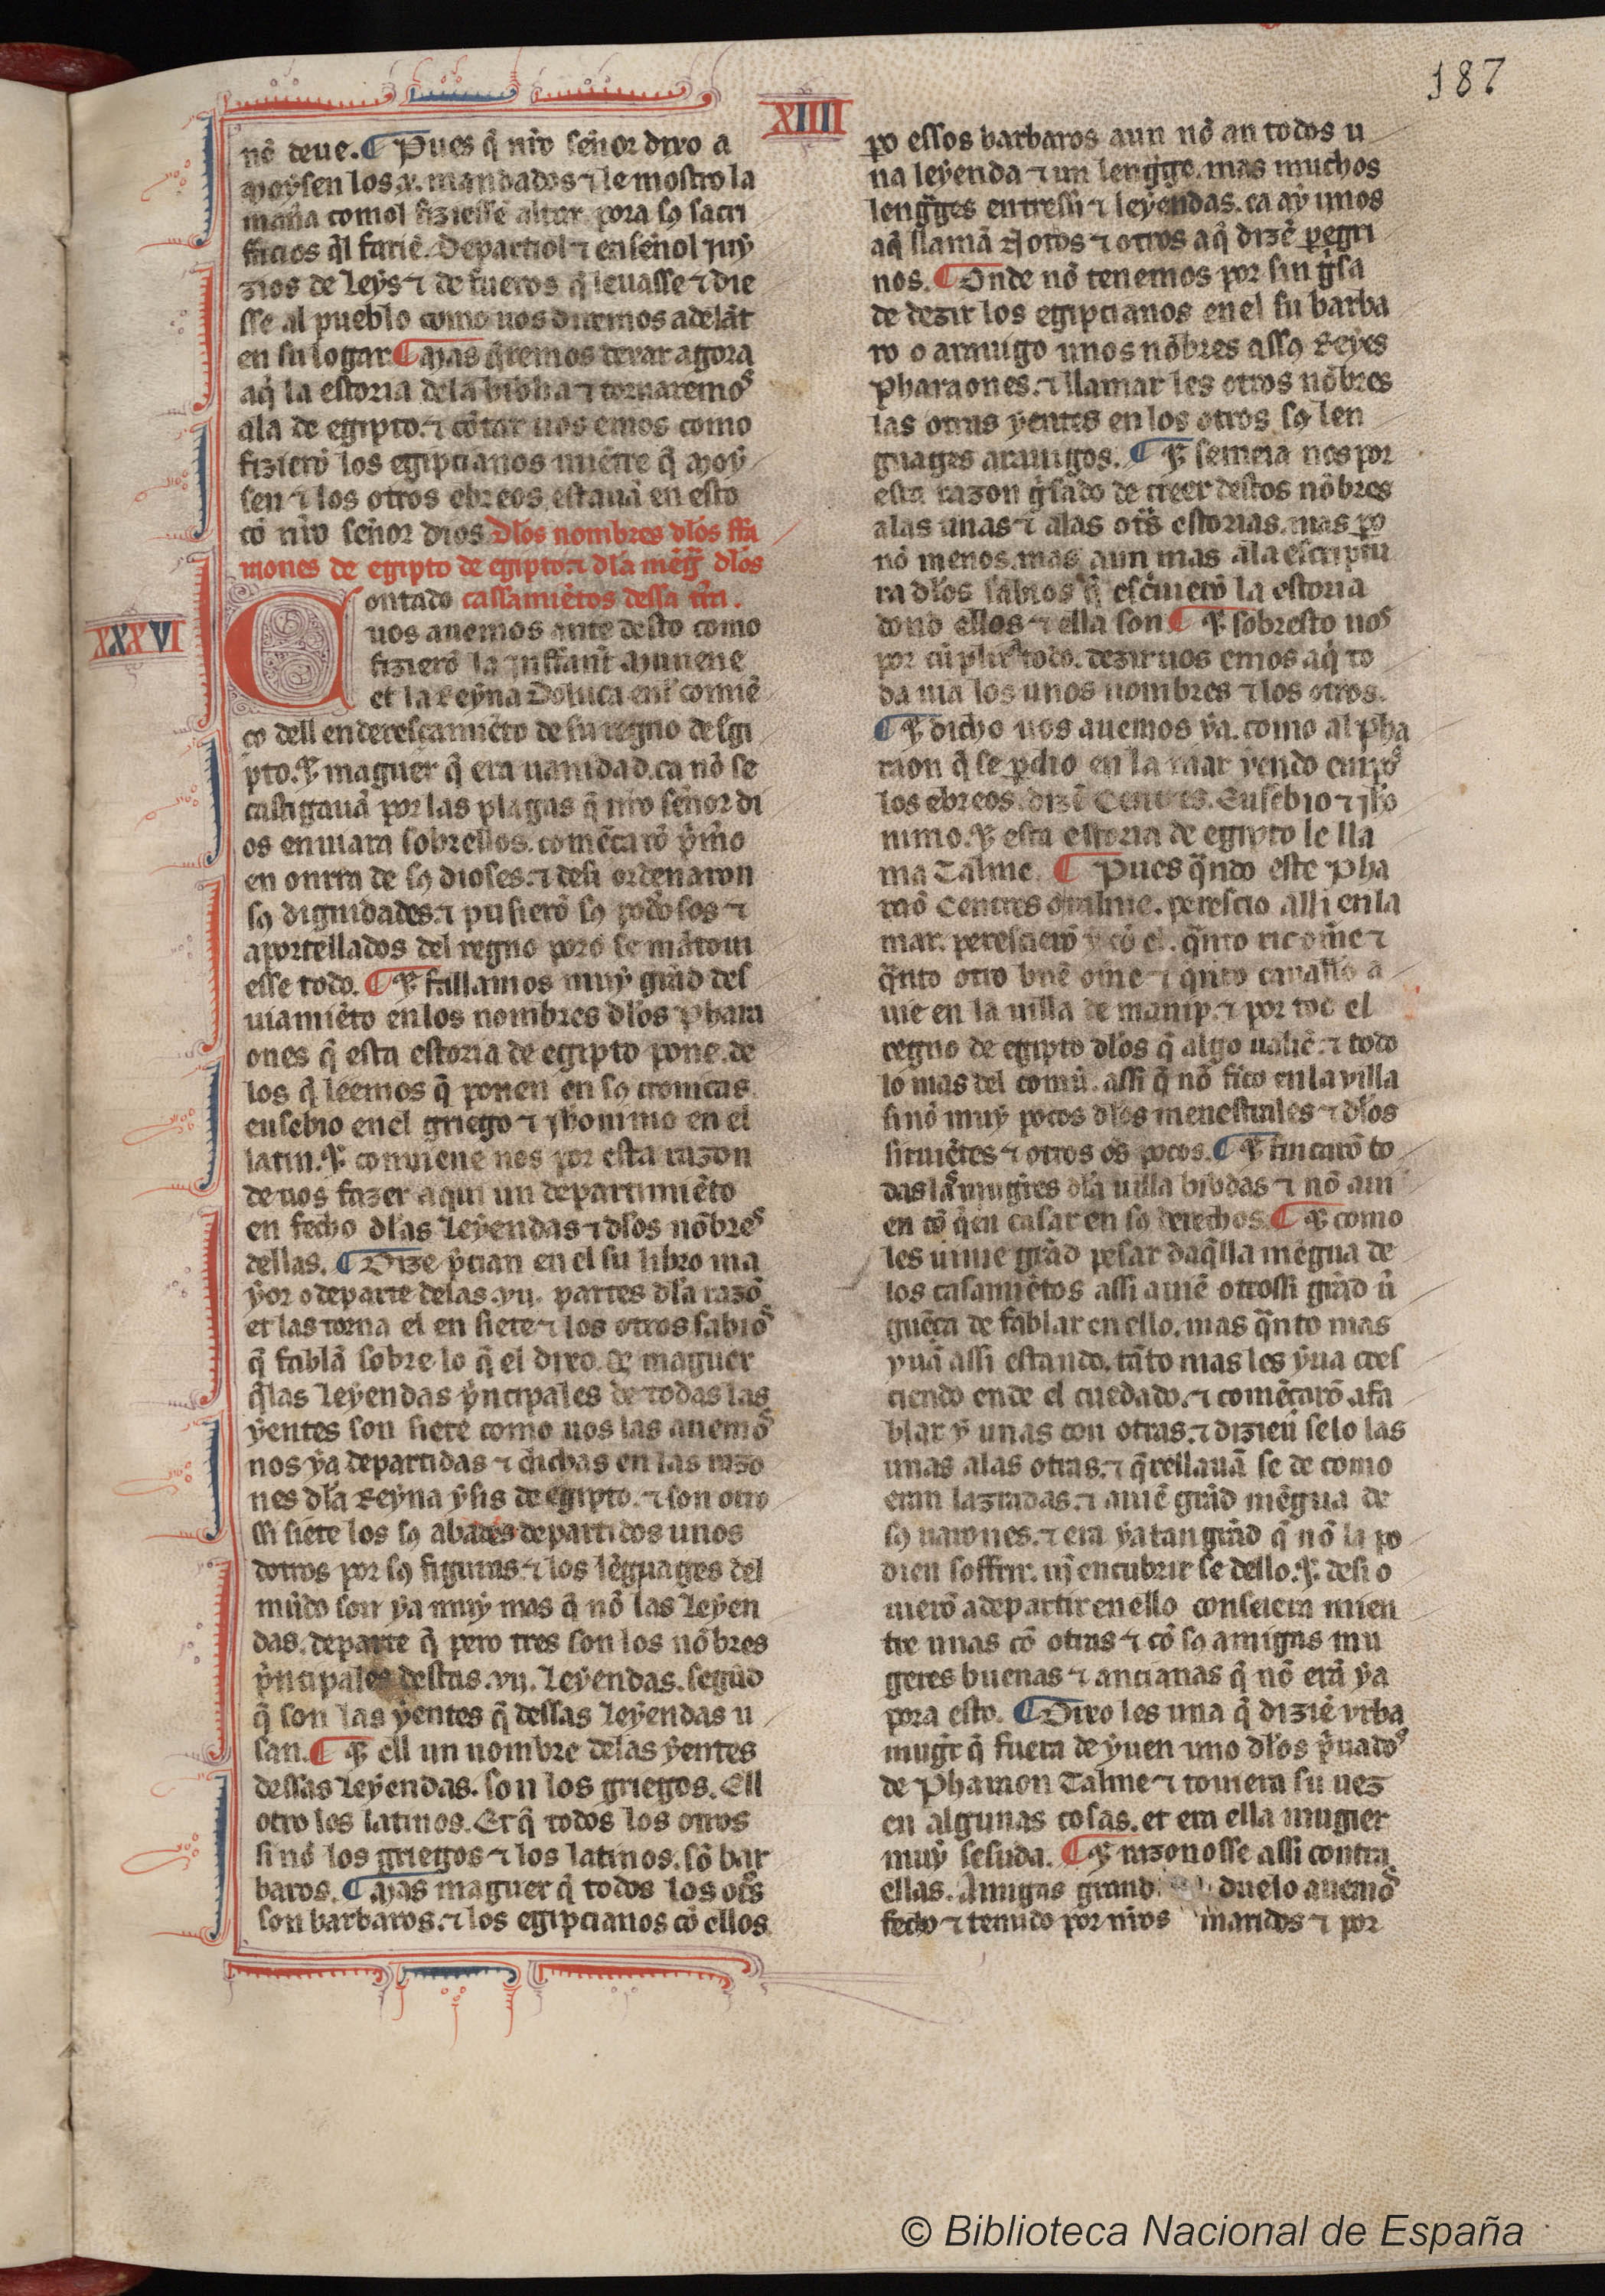 187
XIIII
nõ deue. ¶ Pues q̃ nr̃o señor dixo a
moysen los .x. mandados ⁊ le mostro la
maña comol fiziesse altar pora sꝯ sacri
fficios q̃l farie. Departiol ⁊ enseñol juy
zios de leys ⁊ de fueros q̃ leuasse ⁊ die
sse al pueblo como nos diremos adelãt
en su logar. ¶ Mas q̃remos dexar agora
aq̃ la estoria dela biblia ⁊ tornaremos
ala de egipto. ⁊ cõtar uos emos como
fizierõ los egipcianos miẽtre q̃ moy
sen ⁊ los otros ebreos estauã en esto
cõ nr̃o señor dios. Dlos nombres dlos ffa
raones de egipto de egipto. ⁊ dla mẽg̃ dlos
XXXVI
Contado cassamiẽtos dessa tr̃ra.
uos auemos ante desto como
fizierõ la jnffant Munene
et la Reyna Doluca en comiẽ
ço dell enderesçamiẽto de su regno de Egi
pto. ⁊ maguer q̃ era uanidad. ca nõ se
castigauã por las plagas q̃ nr̃o señor di
os enuiara sobrellos. comẽçarõ pr̃mo
en onrra de sꝯ dioses. ⁊ desi ordenaron
sꝯ dignidades. ⁊ pusierõ sꝯ podosos ⁊
aportellados del regno poro se mãtoui
esse todo. ¶ ⁊ fallamos muy grãd des
uiamiẽto en los nombres dlos Phara
ones q̃ esta estoria de egipto pone. de
los q̃ leemos q̃ ponen en sꝯ cronicas.
eusebio en el griego ⁊ jheronimo en el
latin. ⁊ conuiene nos por esta razon
de uos fazer aqui un departimiẽto
en fecho dlas leyendas ⁊ dlos nõbres
dellas. ¶ Dize p̃cian en el su libro ma
yor o departe delas .viij. partes dla razõ
et las torna el en siete ⁊ los otros sabios
q̃ fablã sobre lo q̃ el dixo. de maguer
q̃ las leyendas p̃ncipales de todas las
yentes son siete como uos las auemos
nos ya departidas ⁊ dichas en las razo
nes dla Reyna ysis de egipto. ⁊ son otro
ssi siete los sꝯ abades departidos unos
dotros por sꝯ figuras. ⁊ los lẽguages del
mũdo son ya muy mas q̃ nõ las leyen
das. departe q̃ pero tres son los nõbres
p̃ncipales destas .vij. leyendas. segũd
q̃ son las yentes q̃ dessas leyendas u
san. ¶ ⁊ ell un nombre delas yentes
dessas leyendas. son los griegos. Ell
otro los latinos. Et q̃ todos los otros
si nõ los griegos ⁊ los latinos. sõ bar
baros. ¶ Mas maguer q̃ todos los ot̃s
son barbaros. ⁊ los egipcianos cõ ellos
ꝑo essos barbaros aun nõ an todos u
na leyenda ⁊ un leng̃ge. mas muchos
leng̃ges entressi ⁊ leyendas. ca ay unos
aq̃ llamã Motos ⁊ otros aq̃ dizẽ ꝑegri
nos. ¶ Onde nõ tenemos por sin g̃sa
de dezir los egipcianos en el su barba
ro o arauigo unos nõbres assꝯ Reyes
pharaones. ⁊ llamar les otros nõbres
las otras yentes en los otros sꝯ len
guages arauigos. ¶ ⁊ semeia nos por
esta razon g̃sado de creer destos nõbres
alas unas ⁊ alas ot̃s estorias. mas ꝑo
nõ menos. mas aun mas ala escriptu
ra dlos sabios q̃ escriuierõ la estoria
dond ellos ⁊ ella son. ¶ ⁊ sobresto nos
por cũplir todo. dezir uos emos aq̃ to
da uia los unos nombres ⁊ los otros.
¶ ⁊ dicho uos auemos ya. como al pha
raon q̃ se ꝑdio en la mar yendo empos
los ebreos. dizẽ Centres. Eusebio ⁊ jhero
nimo. ⁊ esta estoria de egipto le lla
ma Talme. ¶ Pues q̃ndo este Pha
raõ Centres o Talme. perescio alli en la
mar. perescierõ y cõ el. q̃nto ricom̃e ⁊
q̃nto otro buẽ om̃e ⁊ q̃nto cauallo a
uie en la uilla de manip. ⁊ por tod el
regno de egipto dlos q̃ algo ualiẽ. ⁊ todo
lo mas del comũ. assi q̃ nõ fico en la villa
si nõ muy pocos dlos menestrales ⁊ dlos
siruiẽtes ⁊ otros os̃ pocos. ¶ ⁊ fincarõ to
das las mugr̃es dla uilla bibdas ⁊ nõ aui
en cõ q̃en casar en sꝯ derechos. ¶ ⁊ como
les uinie grãd pesar daq̃lla mẽgua de
los casamiẽtos assi auiẽ otrossi grãd ũ
guẽça de fablar en ello. mas q̃nto mas
yuã assi estando. tãto mas les yua cres
ciendo ende el cuedado. ⁊ comẽçarõ a fa
blar y unas con otras. ⁊ dizien selo las
unas alas otras. ⁊ q̃rellauã se de como
eran lazradas. ⁊ auiẽ grãd mẽgua de
sꝯ uarones. ⁊ era ya tan grãd q̃ nõ la po
dien soffrir. nj̃ encubrir se dello. ⁊ desi o
uierõ a departir en ello conseiera mien
tre unas cõ otras ⁊ cõ sꝯ amigas mu
geres buenas ⁊ ancianas q̃ nõ erã ya
pora esto. ¶ Dixo les una q̃ diziẽ yrba
mugr̃ q̃ fuera de yuen uno dlos p̃uados
de Pharaon Talme ⁊ touiera su uez
en algunas cosas. et era ella mugier
muy sesuda. ¶ ⁊ razonosse assi contra
ellas. Amigas grand duelo auemos
fecho ⁊ tenido por nr̃os maridos ⁊ por
© Biblioteca Nacional de España